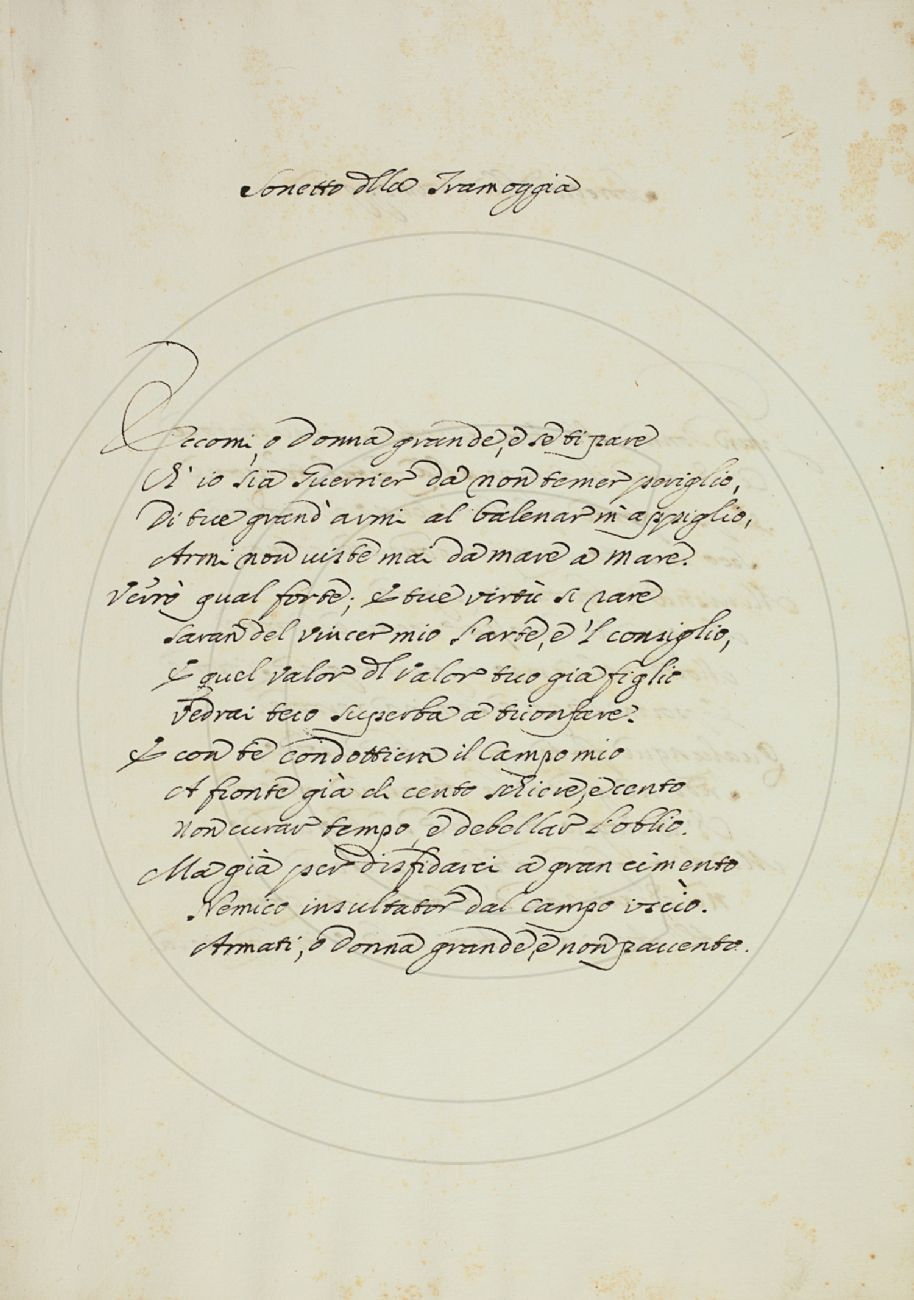 Sonetto dlla Tramoggia
Eccomi, o Donna grande, e se ti pare
Ch' io sia Guerrier da non temer periglio,
Di tue grand' armi al balenar m' appiglio,
Armi non viste mai da mare a mare.
Verrò qual forte; E tue virtù si rare
Saran del vincer mio l'arte, e 'l consiglio,
E quel valor dl valor tuo già figlio
Vedrai teco superba a trionfare.
E con te condottiera il Campo mio
A fronte già di cento schiere, e cento
Non curar tempo, e debellar l'oblio.
Ma già per disfidarci a gran cimento
Nemico insultator dal Campo uscìo.
Armati, o Donna grande, e non pavento.